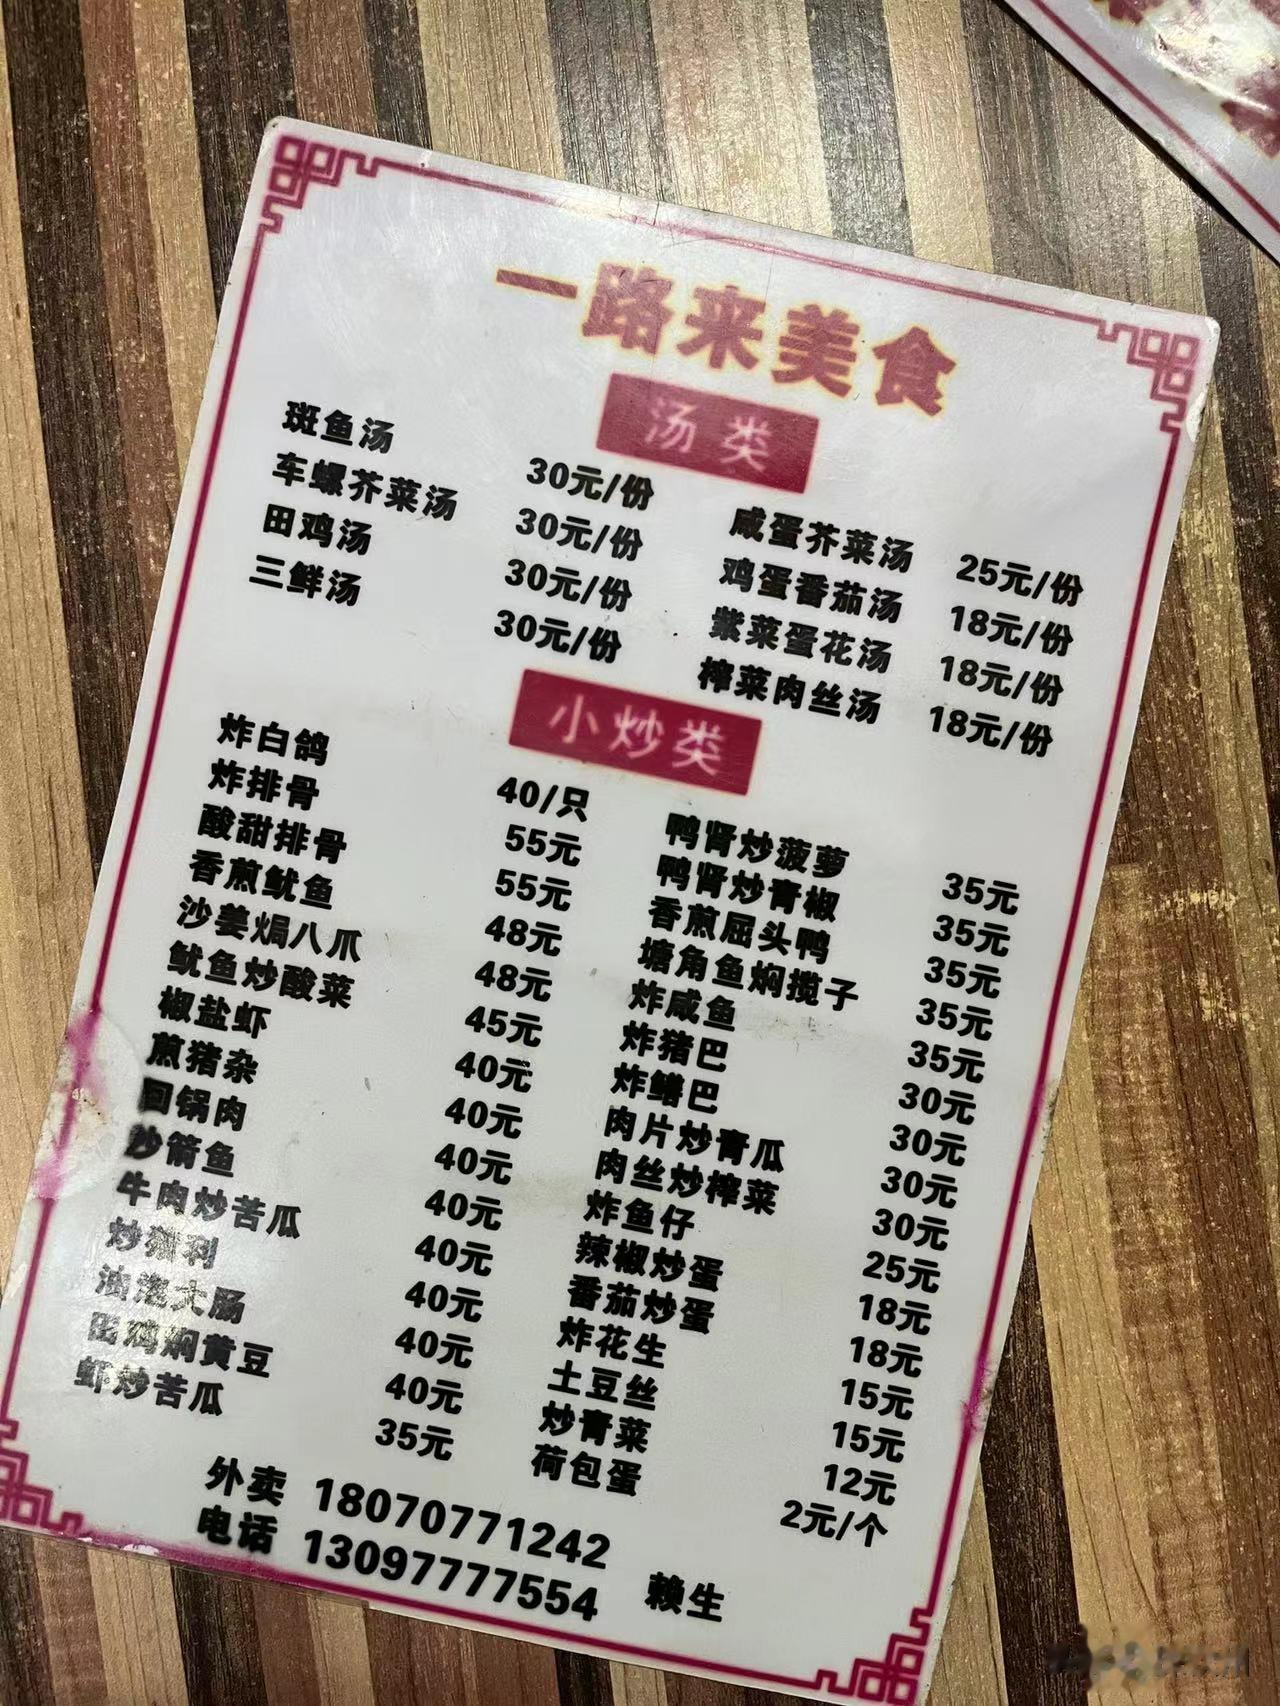 一路来美食
汤类
斑鱼汤 30元/份
车螺芥菜汤 30元/份
田鸡汤 30元/份
三鲜汤 30元/份
咸蛋芥菜汤 25元/份
鸡蛋番茄汤 18元/份
紫菜蛋花汤 18元/份
榨菜肉丝汤 18元/份
小炒类
炸白鸽 40/只
炸排骨 55元
酸甜排骨 55元
香煎鱿鱼 48元
沙姜焗八爪 48元
鱿鱼炒酸菜 45元
椒盐虾 40元
煎猪杂 40元
回锅肉 40元
沙箭鱼 40元
牛肉炒苦瓜 40元
炒猪利 40元
油泡大肠 40元
田鸡焖黄豆 40元
虾炒苦瓜 35元
鸭肾炒菠萝 35元
鸭肾炒青椒 35元
香煎屈头鸭 35元
塘角鱼焖揽子 35元
炸咸鱼 35元
炸猪巴 30元
炸鳝巴 30元
肉片炒青瓜 30元
肉丝炒榨菜 30元
炸鱼仔 25元
辣椒炒蛋 18元
番茄炒蛋 18元
炸花生 15元
土豆丝 15元
炒青菜 12元
荷包蛋 2元/个
外卖 18070771242
电话 13097777554 赖生